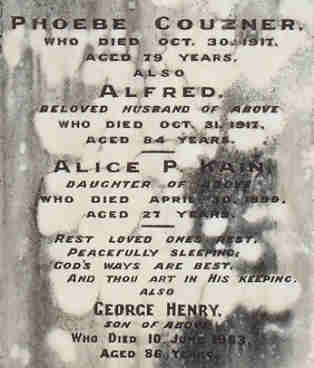 PHOEBE COUZNER.
WHO DIED OCT. 30. 1917.
AGED 79 YEARS.
ALSO
ALFRED.
BELOVED HUSBAND OF ABOVE
WHO DIED OCT. 31. 1917.
AGED 84 YEARS.
ALICE P. KAIN.
DAUGHTER OF ABOVE
WHO DIED APRIL 30. 1899.
AGED 27 YEARS.
REST LOVED ONES REST.
PEACEFULLY SLEEPING;
GOD'S WAYS ARE BEST.
AND THOU ART IN HIS KEEPING.
ALSO
GEORGE HENRY.
SON OF ABOVE.
WHO DIED 10 JUNE 1963.
AGED 86 YEARS.